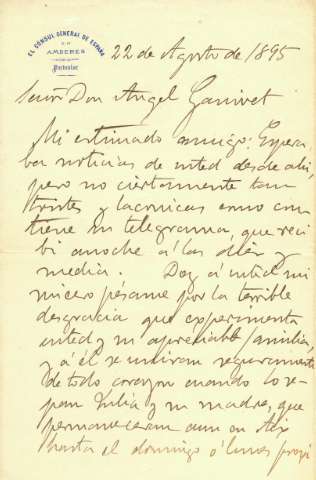 EL CONSUL GENERAL DE ESPAÑA
EN
AMBERES
Particular
22 de Agosto de 1895
Señor Don Angel Ganivet
Mi estimado amigo: Espera
ba noticias de usted desde ahi,
pero no ciertamente tan
tristes y laconicas como con
tiene su telegrama, que reci
bi anoche á las diez y
media. Doy á usted mi
sincero pésame por la terrible
desgracia que experimenta
usted y su apreciable familia,
y á él se uniran seguramente
de todo corazon cuando lo se
pan Julia y su madre, que
permaneceran aun en Aix
hasta el domingo ó lunes proxi